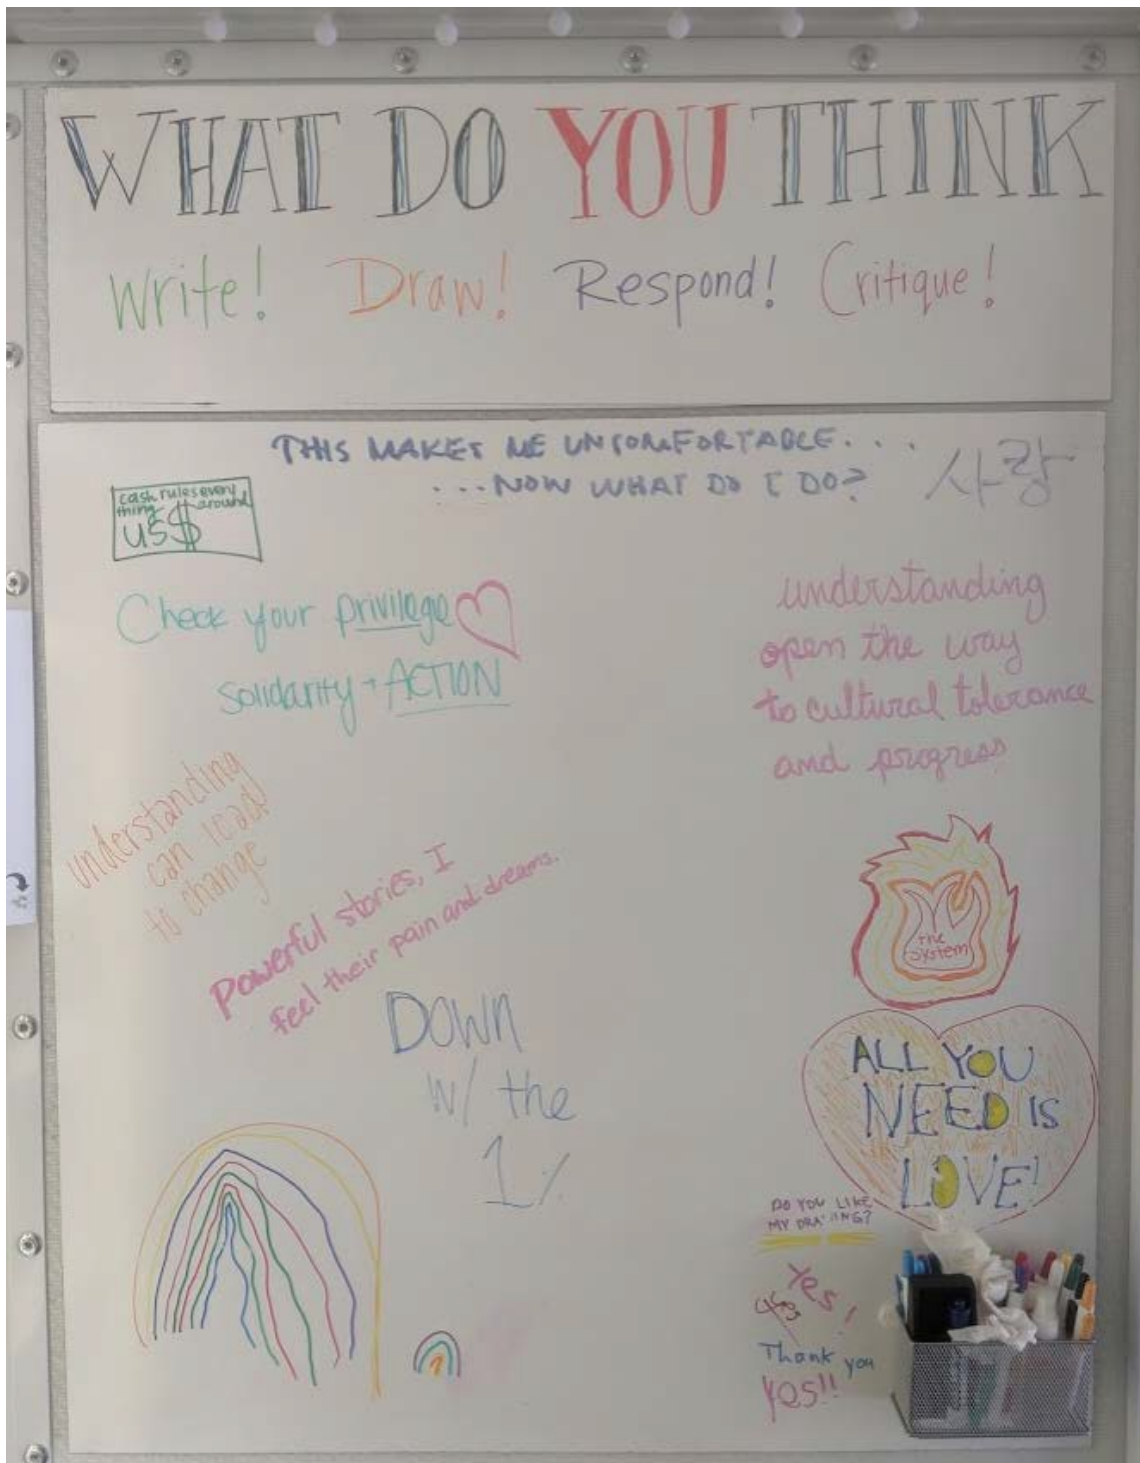 WHAT DO YOU THINK
Write! Draw! Respond! Critique!
THIS MAKES ME UNCOMFORTABLE....
...NOW WHAT DO I DO?
사랑
cash rules every
thing around
US$
Check your privilege
Solidarity + ACTION
understanding
open the way
to cultural tolerance
and progress
understanding
can lead
to change
Powerful stories, I
feel their pain and dreams.
The
System
DOWN
w/ the
1%
ALL YOU
NEED IS
LOVE!
DO YOU LIKE
MY DRAWING?
Yes!
Yes
Thank you
Yes!!